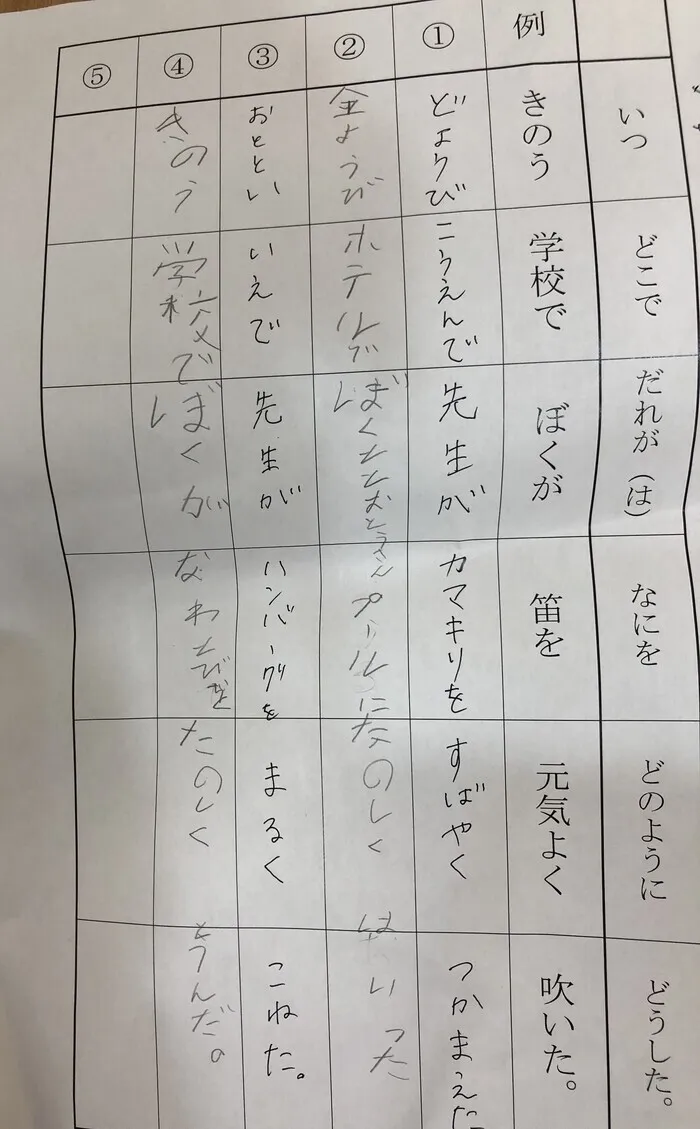 いつ
どこで
だれが（は）
なにを
どのように
どうした。
例
きのう
学校で
ぼくが
笛を
元気よく
吹いた。
①
どようび
こうえんで
先生が
カマキリを
すばやく
つかまえた
②
金ようび
ホテルで
ぼくとおとうさん
プールに
たのしく
はいった
③
おととい
いえで
先生が
ハンバーグを
まるく
こねた。
④
きのう
学校で
ぼくが
なわとびを
たのしく
とんだ。
⑤